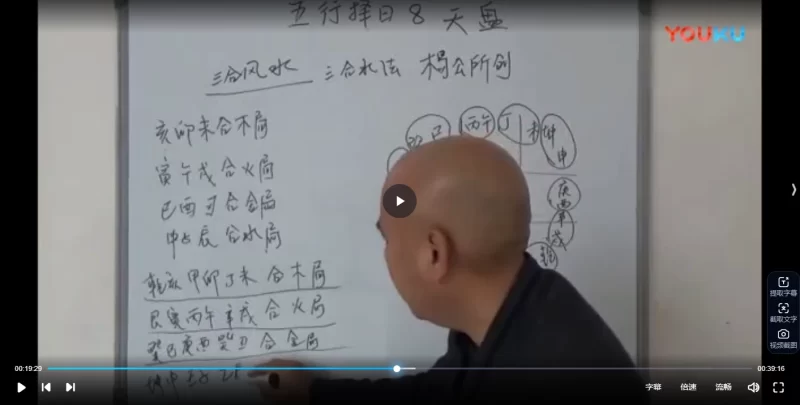 五行择日8 天盘
YOUKU
三合风水 三合水法 杨公所创
亥卯未合木局
寅午戌合火局
巳酉丑合金局
申子辰合水局
乾亥甲卯丁未合木局
艮寅丙午辛戌合火局
巳庚酉癸丑合金局
坤申
巳
丙午
丁
未
坤申
庚酉
辛戌
00:19:29
00:39:16
字幕
倍速
流畅
提取字幕
截取文字
视频截图